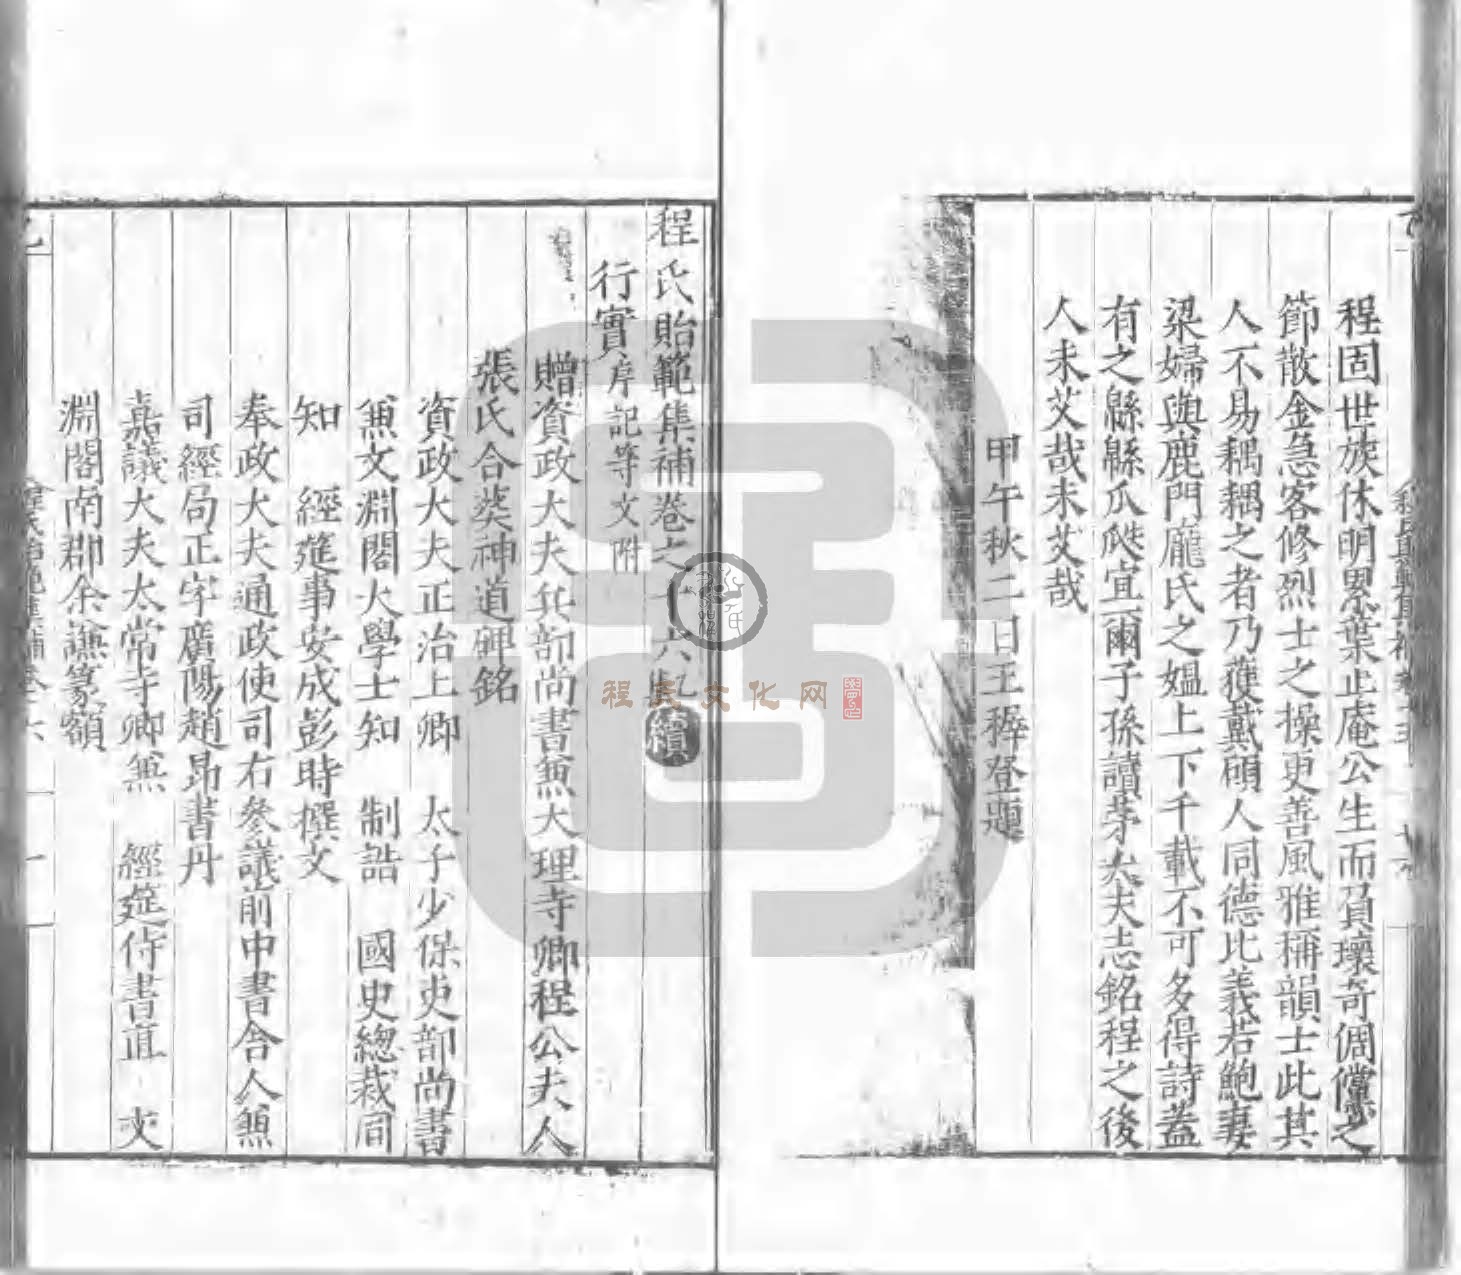 程固世族休明累葉止庵公生而負瓌奇倜儻之
節散金急客修烈士之操更善風雅稱韻士此其
人不易耦耦之者乃獲戴碩人同德比義若鮑妻
梁婦與鹿門龐氏之媼上下千載不可多得詩蓋
有之緜緜瓜瓞宜爾子孫讀茅大夫志銘程之後
人未艾哉未艾哉
甲午秋二日王穉登題
程氏貽範集補卷之
六
續
行實序記等文附
贈資政大夫兵部尚書兼大理寺卿程公夫人
張氏合葬神道碑銘
資政大夫正治上卿 太子少保吏部尚書
兼文淵閣大學士知 制誥 國史總裁同
知 經筵事安成彭時撰文
奉政大夫通政使司右參議前中書舍人兼
司經局正字廣陽趙昂書丹
嘉議大夫太常寺卿兼 經筵侍書直 文
淵閣南郡余謙篆額
程氏文化网